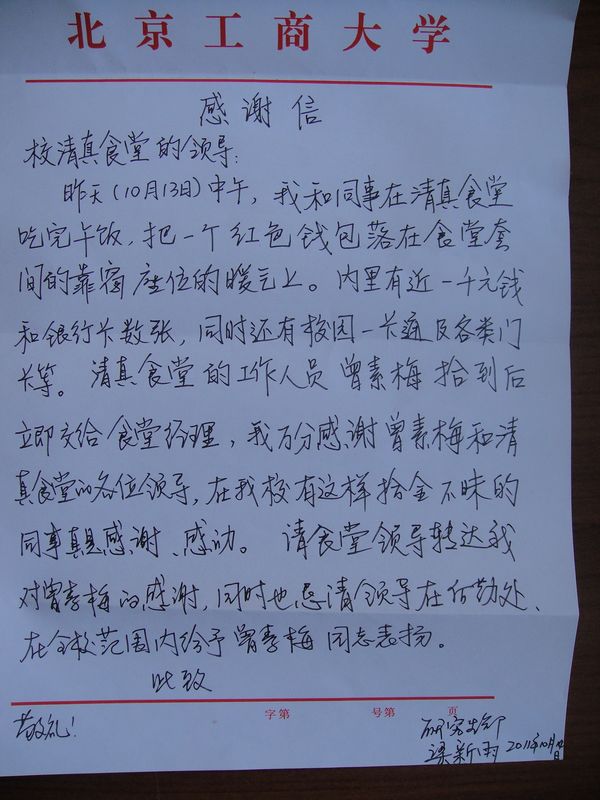 北京工商大学
感谢信
校清真食堂的领导:
昨天(10月13日)中午,我和同事在清真食堂
吃完午饭,把一个红色钱包落在食堂套
间的靠窗座位的暖气上。内里有近一千元钱
和银行卡数张,同时还有校园一卡通及各类门
卡等。清真食堂的工作人员曾素梅拾到后
立即交给食堂经理,我万分感谢曾素梅和清
真食堂的各位领导,在我校有这样拾金不昧的
同事真是感谢、感动。请食堂领导转达我
对曾素梅的感谢,同时也恳请领导在后勤处、
在全校范围内给予曾素梅同志表扬。
此致
字第 号第 页
敬礼!
研究生部
梁新雨 2011年10月14日